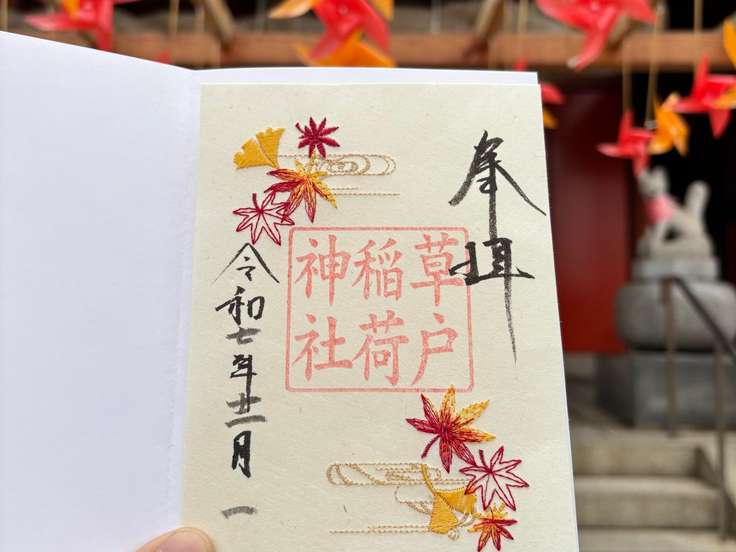 奉拝
草戸
稲荷
神社
令和七年十一月一